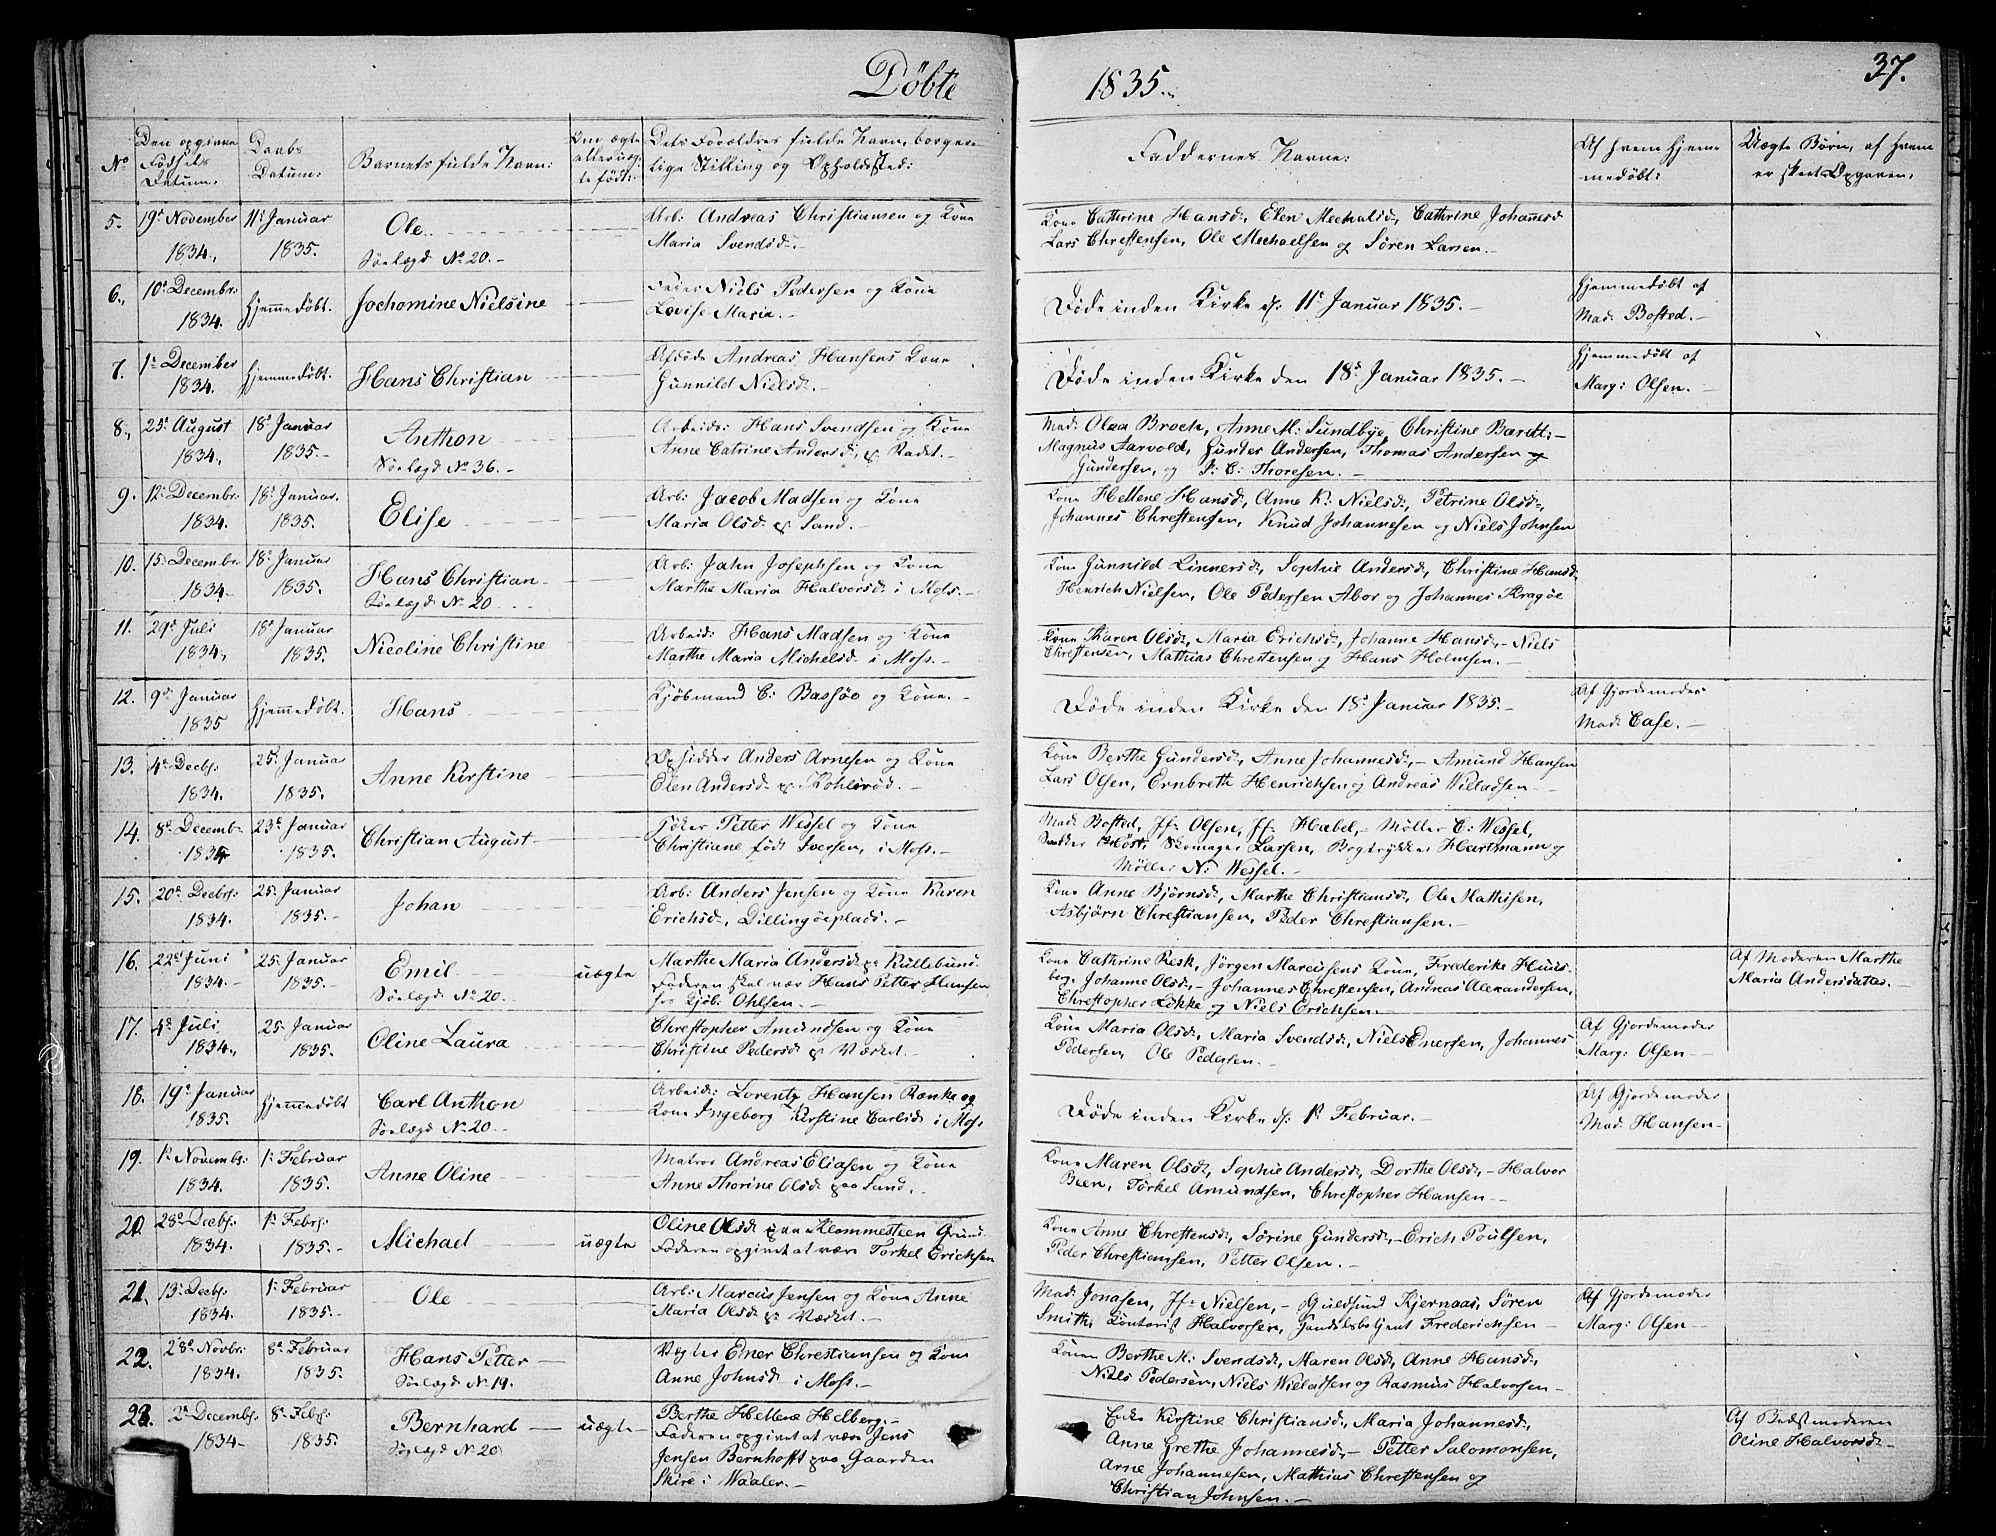 Döbte 1835. 37.
No
Den opgivne Fødsels Datum.
Daabs Datum:
Barnets fulde Navn:
Om ægte eller uægte født:
Dets Forældres fulde Navn, borgerlige Stilling og Opholdssted:
Faddernes Navne:
Af hvem hjemmedøbt:
Uægte Børn, af hvem er skeet Opgaven.
5. 19de November 11te Januar Ole. Arb: Andreas Christiansen og Kone Kone Cathrine Hansd., Elen Mechalsd., Cathrine Johannesd
1834., 1835. Søelægd No 20.- Maria Svendsd.- Lars Chrestensen, Ole Mechaelsen og Sören Larsen.
6., 10de Decembr: hjemmedøbt. Jochomine Nielsine Niels Pedersen og Kone Døde inden Kirke d: 11te Januar 1835.- hjemmedøbt af
1834. Lovise Maria.- Mad: Bosted.-
7. 1te December hjemmedøbt. Hans Christian Afdøde Andreas Hansens Kone Døde inden Kirke den 18de Januar 1835.- hjemmedøbt af
1834. Gunnild Nielsd.- Marg: Olsen.-
8., 25de August 18de Januar Anthon Arbeids: Hans Svendsen og Kone Mad: Olea Broch, Anne M: Sundbye, Christine Bardt:-
1834., 1835.- Søelægd No 36.- Anne Catrine Andersd., p. Radet.- Magnus Aarvold, Gunder Andersen, Thomas Andersen og
Gundersen, og P: C: Thoresen.-
9. 12te Decembr: 18de Januar. Elise Arb: Jacob Madsen og Kone Kone Hellene Hansd., Anne K: Nielsd., Petrine Olsd.,
1834. 1835. Maria Olsd. p. Sand.- Johannes Chrestensen, Knud Johannesen og Niels Johnsen
10. 15de Decembr: 18de Januar Hans Christian Arb: Jahn Josephsen og Kone Kone Gunnild Linnersd., Sophie Andersd., Christine Hansd.
1834- 1835. Søelægd No 20 Marthe Maria Halvorsd. i Moss.- Henrich Nielsen, Ole Pedersen Abor og Johannes Kragøe
11. 29de Juli 18de Januar Nicoline Christine Arbeid: Hans Madsen og Kone Kone Karen Olsd., Maria Erichsd., Johanne Hansd.,- Niels
1834., 1835. Marthe Maria Michelsd. i Moss.- Chrestensen, Mathias Chrestensen og Hans Holmsen.-
12. 9de Januar hjemmedøbt. Hans Kjöbmand C: Bassøe og Kone.- Døde inden Kirke den 18de Januar 1835.- Af Gjordemoder
1835 Mad: Case.-
13. 4de Decbr. 25de Januar Anne Kirstine Opsidder Anders Arnesen og Kone Kone Berthe Gundersd., Anne Johannesd.,- Amund Hansen
1834. 1835. Elen Andersd. p. Kohlsrød.- Lars Olsen, Ernbreth Henrichsen og Andreas Wieladsen-
14. 8de Decembr. 23de Januar Christian August Petter Wessel og Kone Mad: Bosted, Jf: Olsen, Jf: Habel,- Møller C: Wessel,
1834 1835. Christiane født Iversen, i Moss.- Høst, Skomager Larsen, Bogtrykker Hartmann og
Møller N: Wessel.-
15. 20de Decbr: 25. Januar Johan Arb: Anders Jensen og Kone Karen Kone Anne Bjørnsd., Marthe Christiansd., Ole Mathisen,
1834. 1835.- Erichsd., Dillingöepladsen.- Asbjörn Chrestiansen, Peder Chrestiansen.-
16. 22de Juni 25. Januar Emil uægte Marthe Maria Andersd. pa Kullebund. Kone Cathrine Resk, Jörgen Marcusens Kone, Frederike Huus- Af Moderen Marthe
1834.- 1835.- Søelægd No 20. Faderen skal være Hans Petter Hansen berg, Johanne Olsd.,- Johannes Chrestensen, Andreas Alexandersen, Maria Andersdatter.
hos Kjöb: Ohlsen.- Chrestopher Løkke og Niels Erichsen.-
17. 4de Juli, 25. Januar Oline Laura Chrestopher Amundsen og Kone Kone Maria Olsd., Maria Svendsd., Niels Enersen, Johannes Af Gjordemoder
1834., 1835. Christine Pedersd. p. Værket.- Pedersen, Ole Pedersen.- Marg: Olsen-
18. 19de Januar hjemmedøbt Carl Anthon Arbeid: Lorentz Hansen Rænke og Døde inden Kirke d: 1te Februar.- Af Gjordemoder
1835. Søelægd No 20.- Kone Ingeborg Kirstine Carlsd. i Moss Mad: Hansen-
19. 1te Novembr: 1te Februar Anne Oline Matros Andreas Eliasen og Kone Kone Maren Olsd., Sophie Andersd., Dorthe Olsd.,- Halvor
1834. 1835. Anne Thorine Olsd. paa Sand.- Torkel Amundsen, Chrestopher Hansen.-
20 28de Decbr: 1te Febr: Michael uægte Oline Olsd. paa Klommesteen Grund. Kone Anne Chrestensd., Sörine Gundersd.,- Erich Poulsen,
1834. 1835.- Faderen opgivet at være Torkel Erichsen Peder Chrestiansen, Petter Olsen.-
21. 13de Decbr 1te Februar Ole Arb: Marcus Jensen og Kone Anne Mad: Jonasen, Jf: Nielsen,- Guldsmed Kjernaas, Sören Af Gjordemoder
1834. 1835.- Maria Olsd. p. Værket.- Smith, Contorist Halvorsen, Handelsbetjent Frederichsen- Marg: Olsen-
22. 28de Novbr: 8de Februar Hans Petter Vægter Ener Chrestiansen og Kone Konen Berthe M: Svendsd., Maren Olsd., Anne Hansd.,
1834. 1835. Søelægd No 19. Anne Johnsd. i Moss.- Niels Pedersen, Niels Wieladsen og Rasmus Halvorsen-
23. 2de Decembr. 8de Febr: Bernhard uægte Berthe Hellene Helberg.- Enke Kirstine Christiansd., Maria Johannesd., Af Bedstemoderen
1834- 1835. Søelægd No 20 Faderen opgivet at være Jens Anne Grethe Johannesd.,- Petter Salomonsen, Oline Halvorsd.-
Jensen Bernhofft paa Gaarden Arne Johannesen, Mathias Chrestensen og
Skire i Waaler.- Christian Johnsen.-